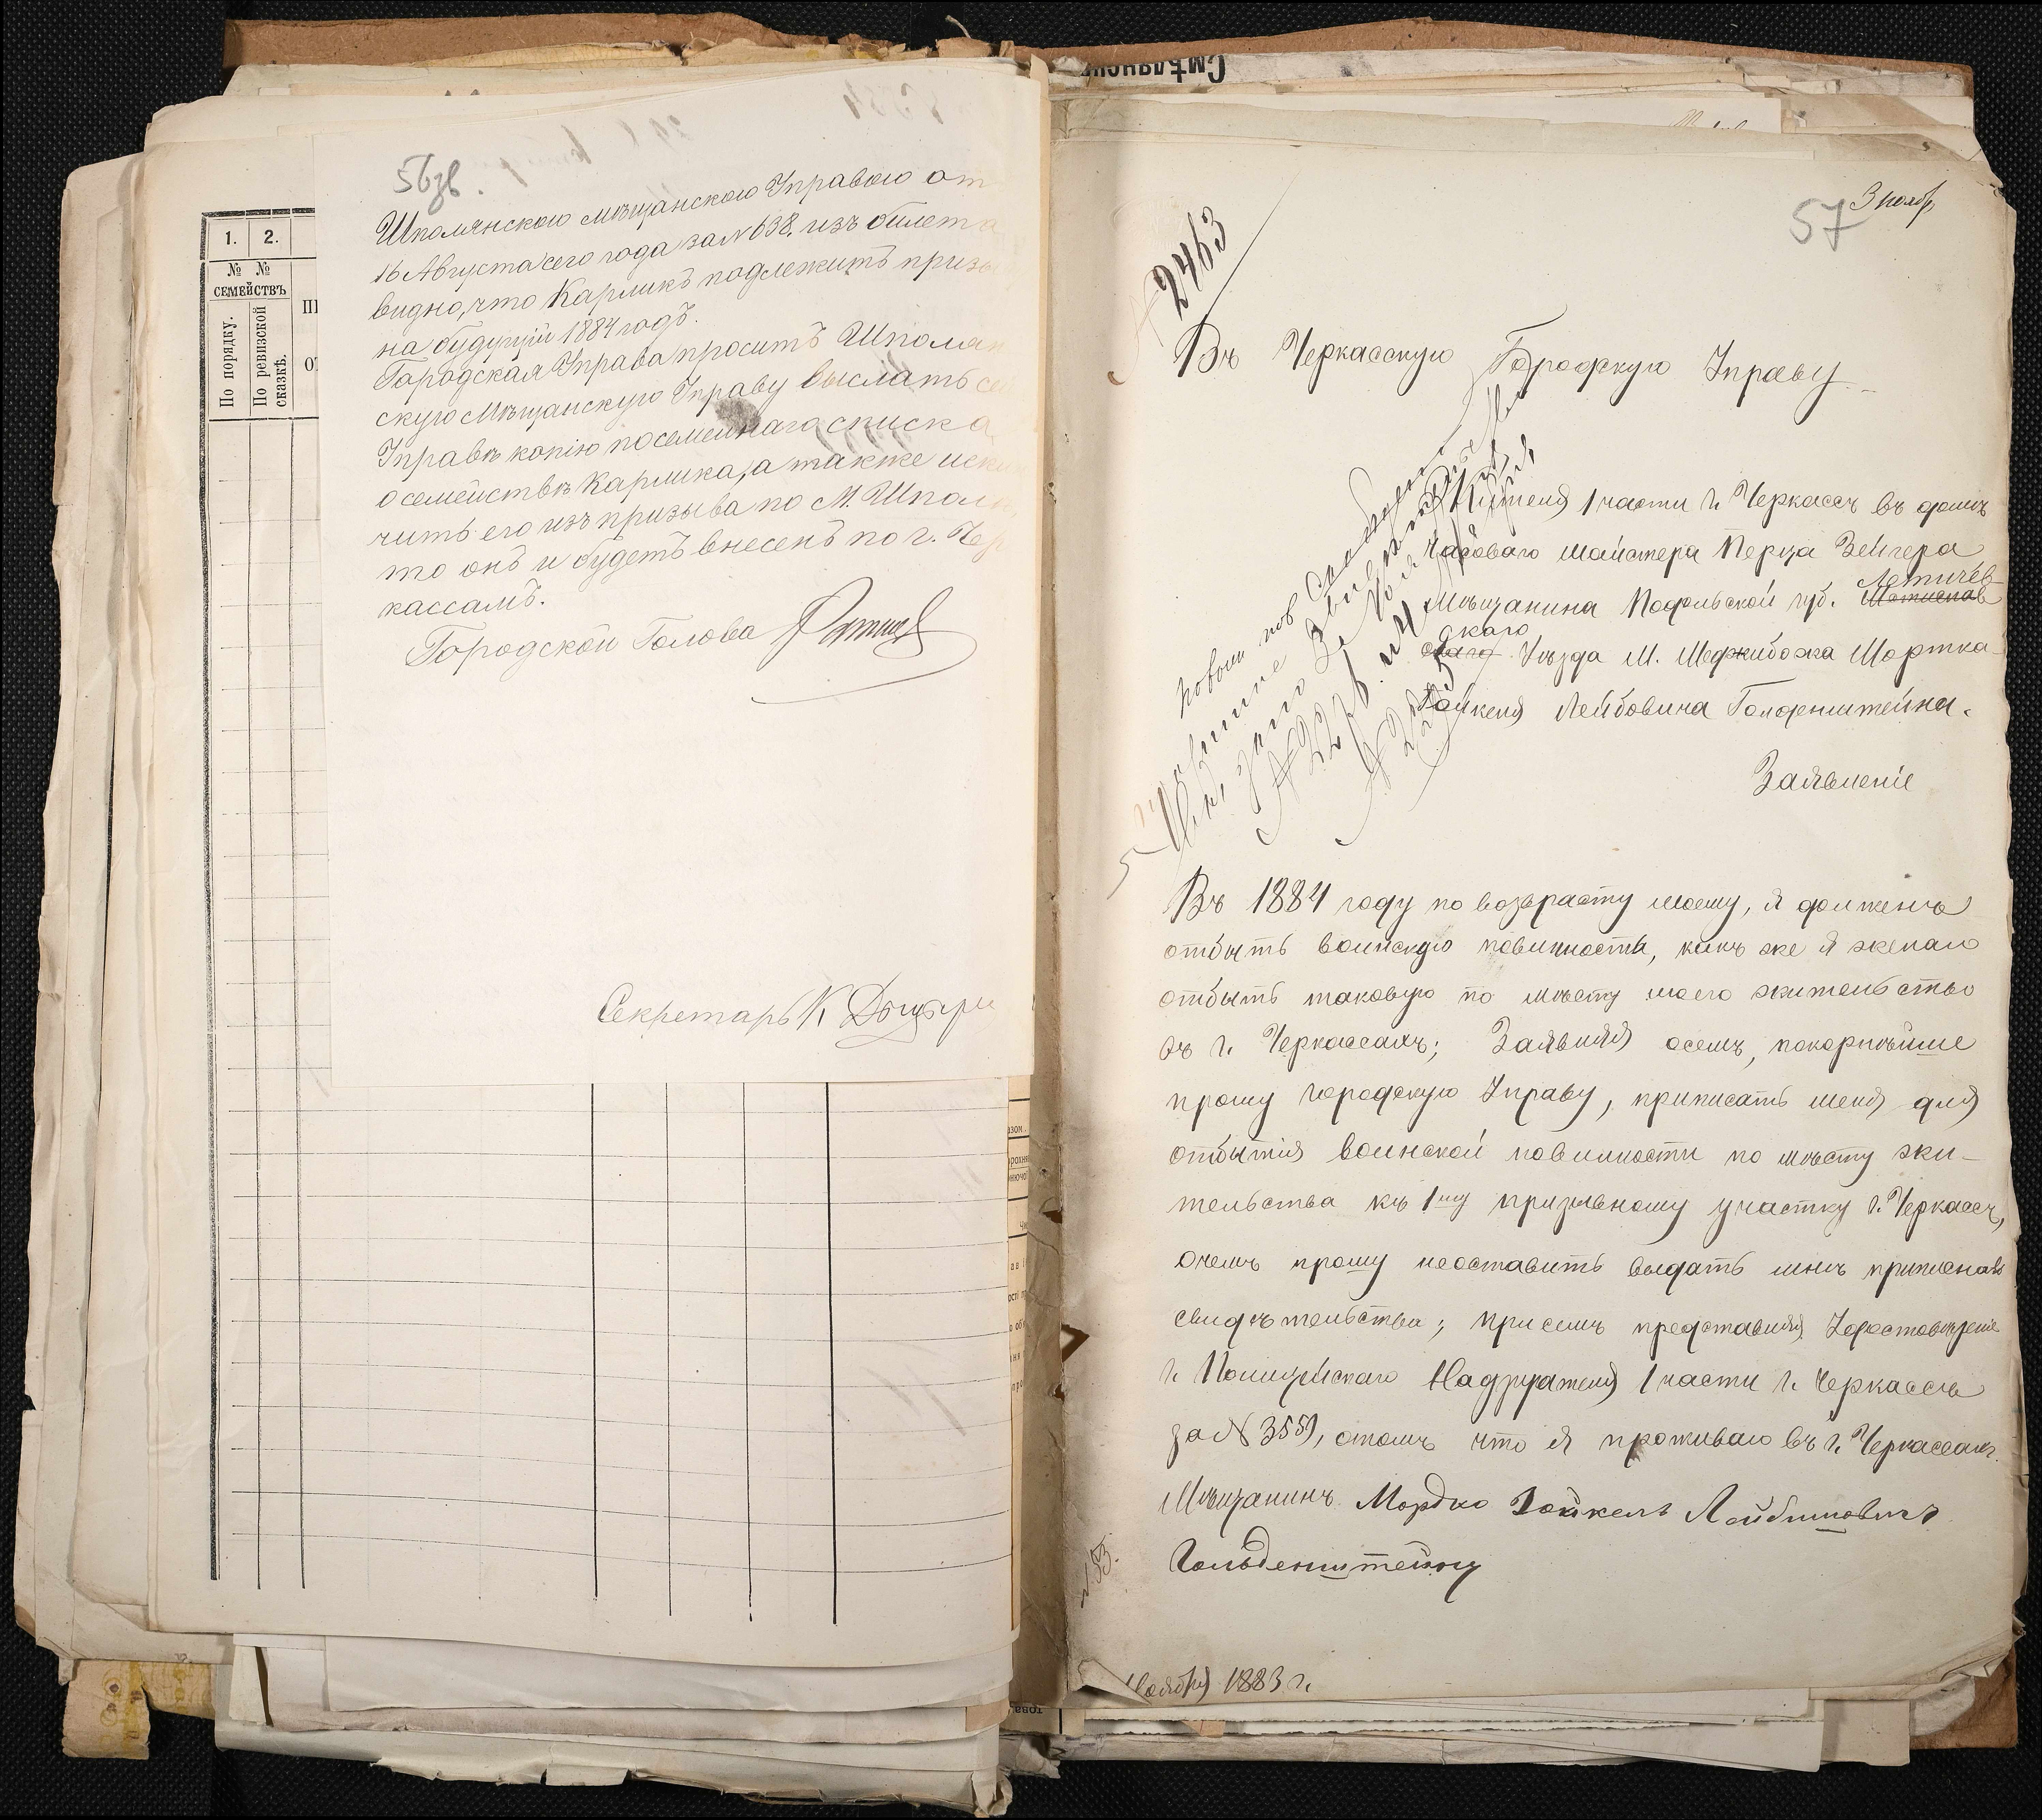 56зв.
1. 2.
№ №
СЕМЕЙСТВЪ
По порядку.
По ревизской
сказкѣ.
Шполянскою мѣщанскою Управою от
16 Августа сего года за № 638. изъ билета
видно, что Карликъ подлежитъ призы
на будущій 1884 годъ.
Городская Управа проситъ Шполян
скую Мѣщанскую Управу выслать сей
Управѣ копію посемейнаго списка
о семействѣ Карлика, а также искл
чить его изъ призыва по М. Шполѣ
то онъ и будетъ внесенъ по г. Чер
кассамъ.
Городской Голова
Секретарь К.
Смѣлянск
57 3 ноябр
№ 2463
Въ Черкасскую Городскую Управу
Жителя 1 части г. Черкассъ въ домѣ
часоваго майстера Перца Зейгера
Летичев-
Мѣщанина Подольской губ.
скаго
Уѣзда М. Меджибожа Мортка-
Гойкеля Лейбовича Голденштейна.
Заявленіе
Въ 1884 году по возврасту моему, я долженъ
отбыть воинскую повинность, какъ же я желаю
отбыть таковую по мѣсту моего жительство
въ г. Черкассахъ; Заявляя осемъ, покорнѣйше
прошу городскую Управу, приписать меня для
отбытія воинской повинности по мѣсту жи-
тельства къ 1му призывному участку г. Черкассъ,
очемъ прошу неоставить выдать мнѣ
свидѣтельства; присемъ представляя
г. Полицейскаго Надзирателя 1 части г. Черкассъ
за № 3559, отомъ что я проживаю въ г. Черкассахъ.
Мѣщанинъ Мордко Гойкель
Гольденштейнъ
№ 53.
Ноября 1883 г.